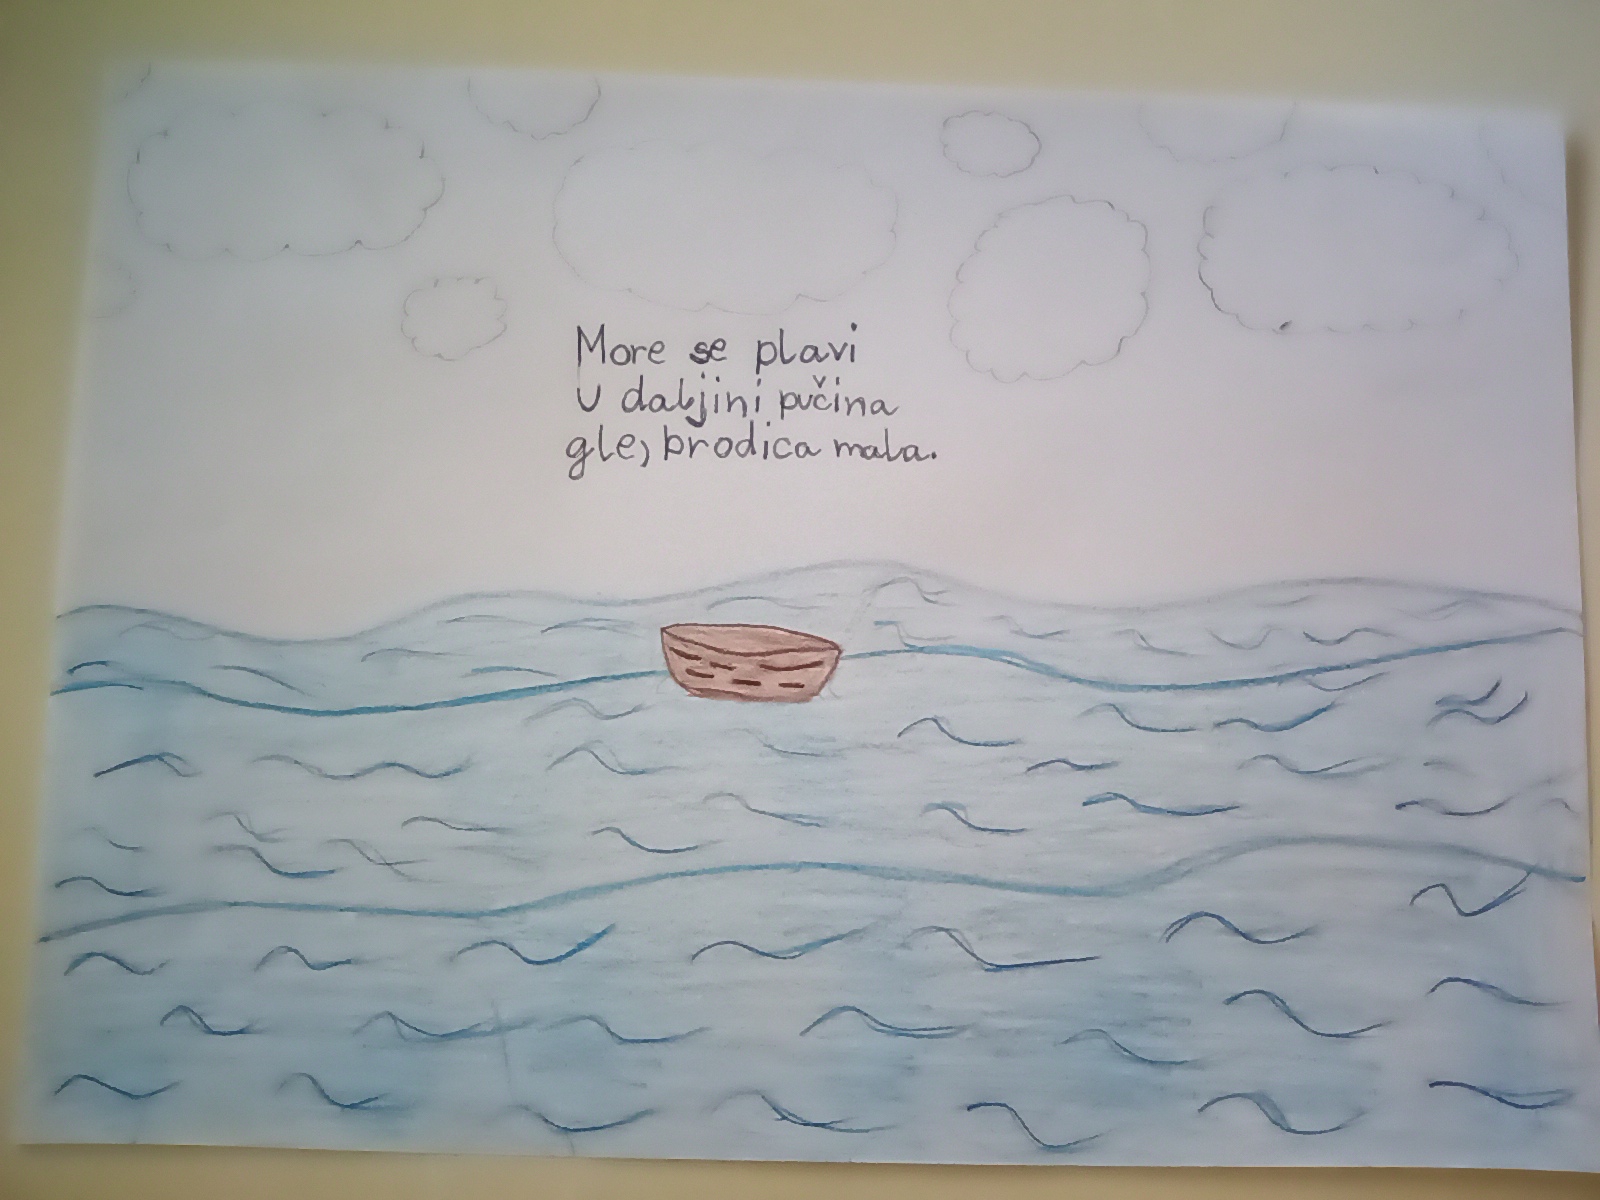 More se plavi
U daljini pučina
gle, brodica mala.